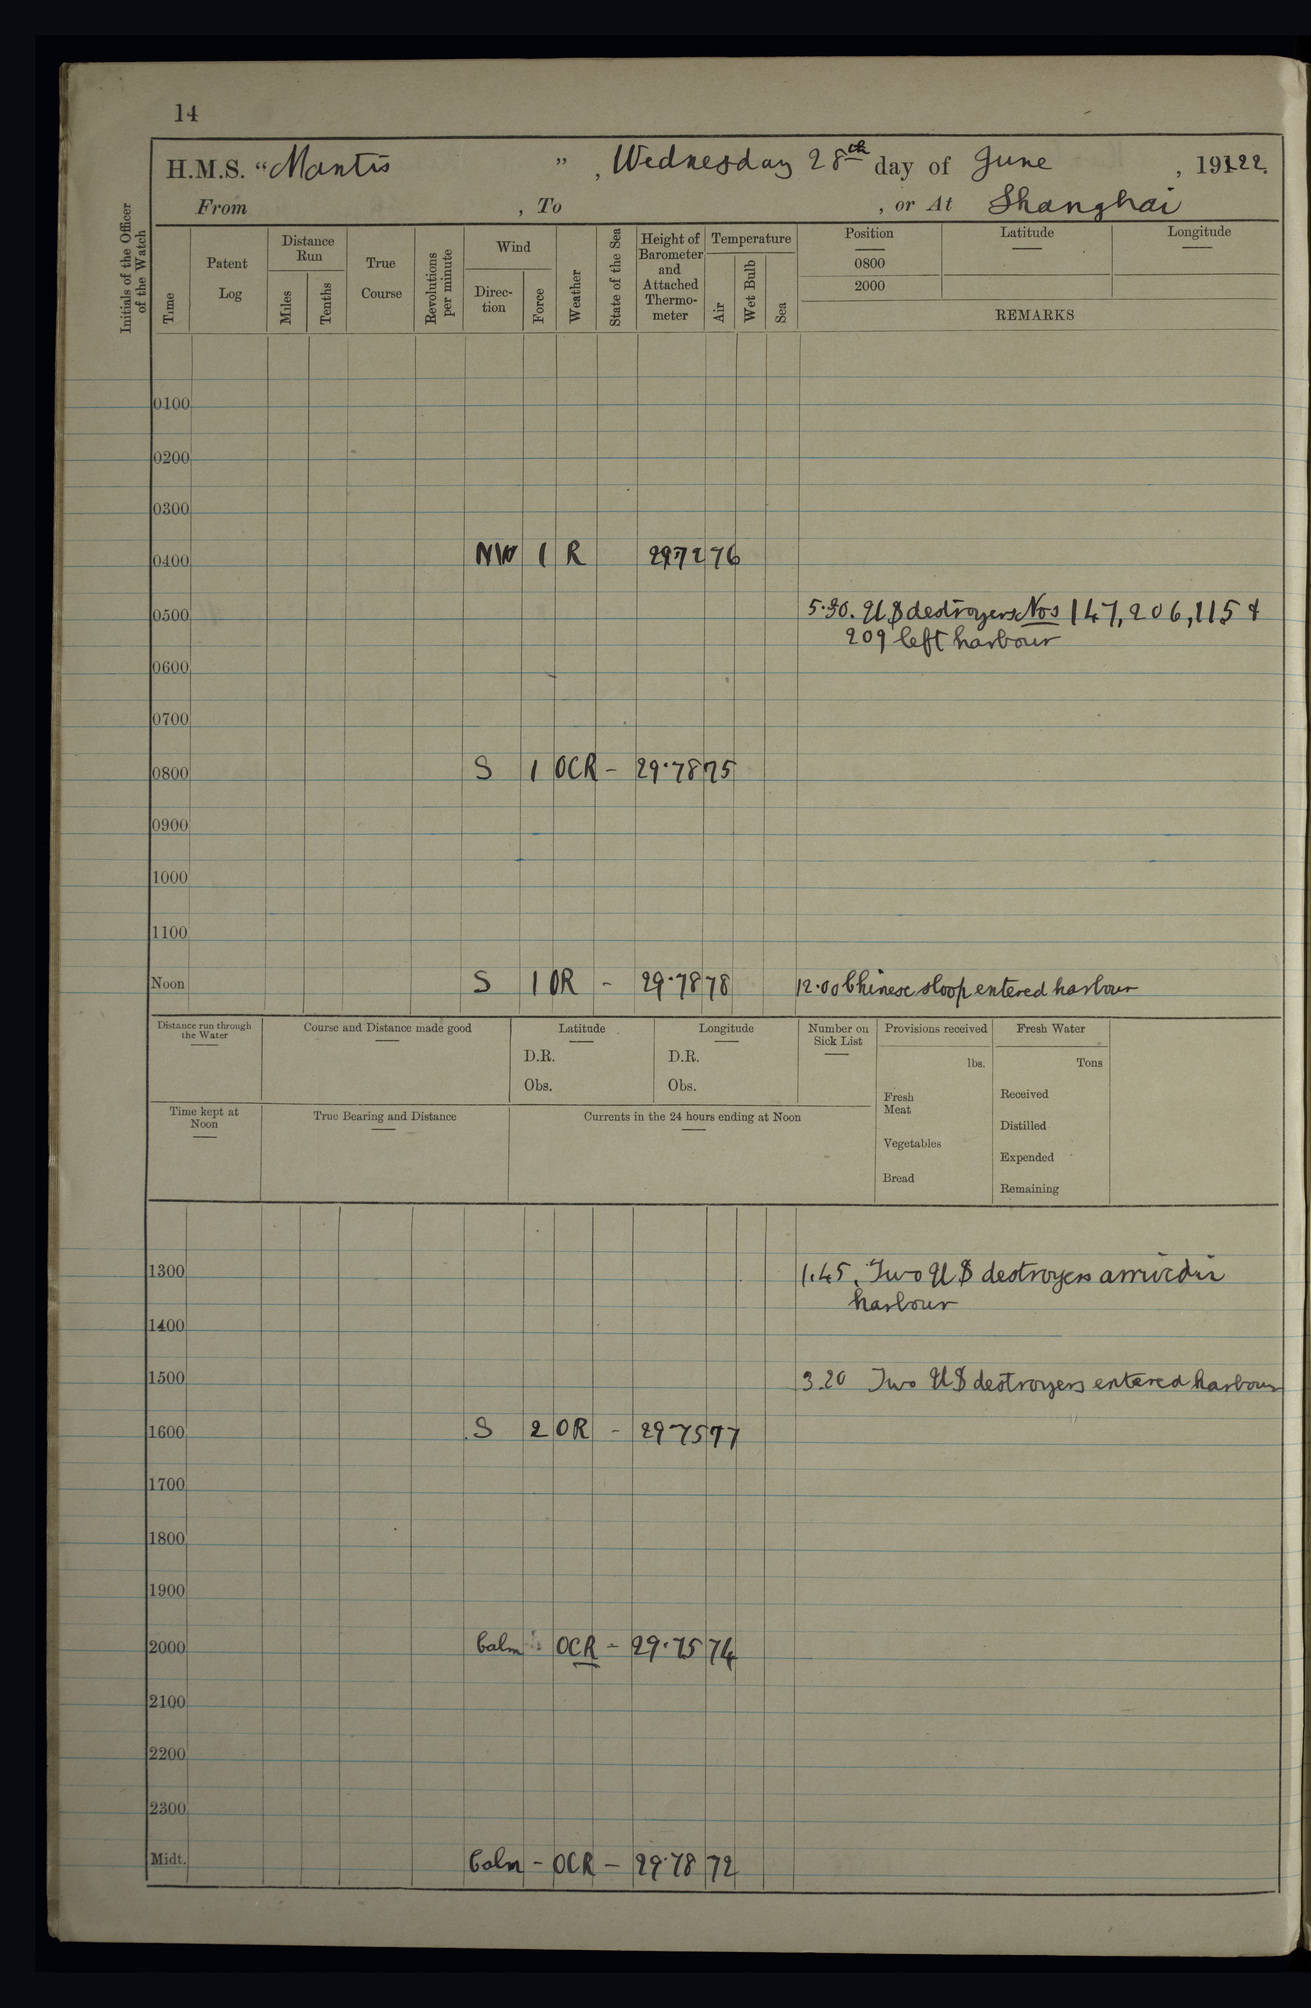 14
H.M.S. "Mantis", Wednesday 28th day of June, 1922.
From , To , or At Shanghai
Initials of the Officer of the Watch
Time
Patent Log
Distance Run
Miles
Tenths
True Course
Revolutions per minute
Wind
Direction
Force
Weather
State of the Sea
Height of Barometer and Attached Thermometer
Temperature
Air
Wet Bulb
Sea
Position
0800
2000
Latitude
Longitude
REMARKS
0100
0200
0300
0400 NW 1 R 29.72 76
0500 5.30. US destroyers Nos 147, 206, 115 &
209 left harbour
0600
0700
0800 S 1 OCR - 29.78 75
0900
1000
1100
Noon S 1 OR - 29.78 78 12.00 Chinese sloop entered harbour
Distance run through the Water
Course and Distance made good
Latitude
D.R.
Obs.
Longitude
D.R.
Obs.
Number on Sick List
Provisions received
lbs.
Fresh Meat
Vegetables
Bread
Fresh Water
Tons
Received
Distilled
Expended
Remaining
Time kept at Noon
True Bearing and Distance
Currents in the 24 hours ending at Noon
1300 1.45. Two US destroyers arrived in
harbour
1400
1500 3.20 Two US destroyers entered harbour
1600 S 2 OR - 29.75 77
1700
1800
1900
2000 Calm OCR - 29.75 74
2100
2200
2300
Midt. Calm - OCR - 29.78 72